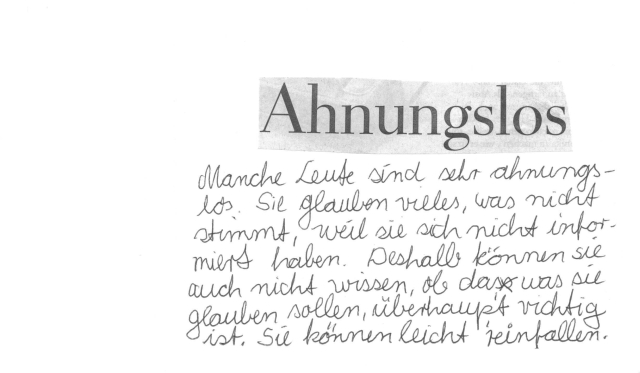 Ahnungslos
Manche Leute sind sehr ahnungs-
los. Sie glauben vieles, was nicht
stimmt, weil sie sich nicht infor-
miert haben. Deshalb können sie
auch nicht wissen, ob das was sie
glauben sollen, überhaupt richtig
ist. Sie können leicht reinfallen.